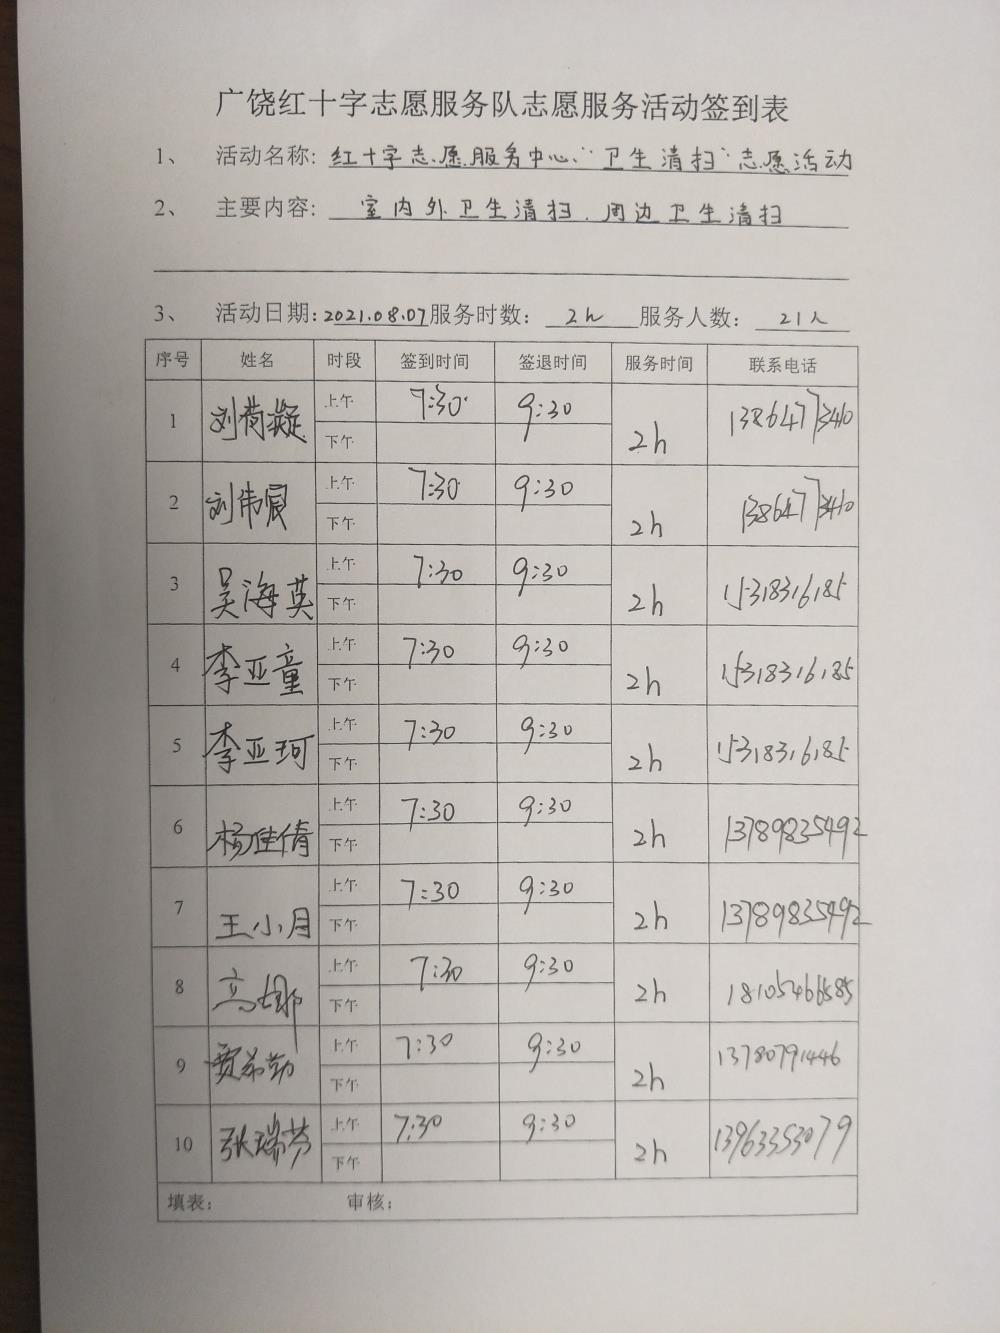 广饶红十字志愿服务队志愿服务活动签到表
1、 活动名称: 红十字志愿服务中心"卫生清扫"志愿活动
2、 主要内容: 室内外卫生清扫、周边卫生清扫
3、 活动日期: 2021.08.07 服务时数: 2h 服务人数: 21人
序号 姓名 时段 签到时间 签退时间 服务时间 联系电话
1 刘荷凝 上午 7:30 9:30 2h 13864773410
下午
2 刘伟宸 上午 7:30 9:30 2h 13864773410
下午
3 吴海英 上午 7:30 9:30 2h 15318316185
下午
4 李亚童 上午 7:30 9:30 2h 15318316185
下午
5 李亚珂 上午 7:30 9:30 2h 15318316185
下午
6 杨佳倩 上午 7:30 9:30 2h 13789835492
下午
7 王小月 上午 7:30 9:30 2h 13789835492
下午
8 高娜 上午 7:30 9:30 2h 18105466585
下午
9 贾勤 上午 7:30 9:30 2h 13780791446
下午
10 张瑞芬 上午 7:30 9:30 2h 13963353079
下午
填表: 审核: